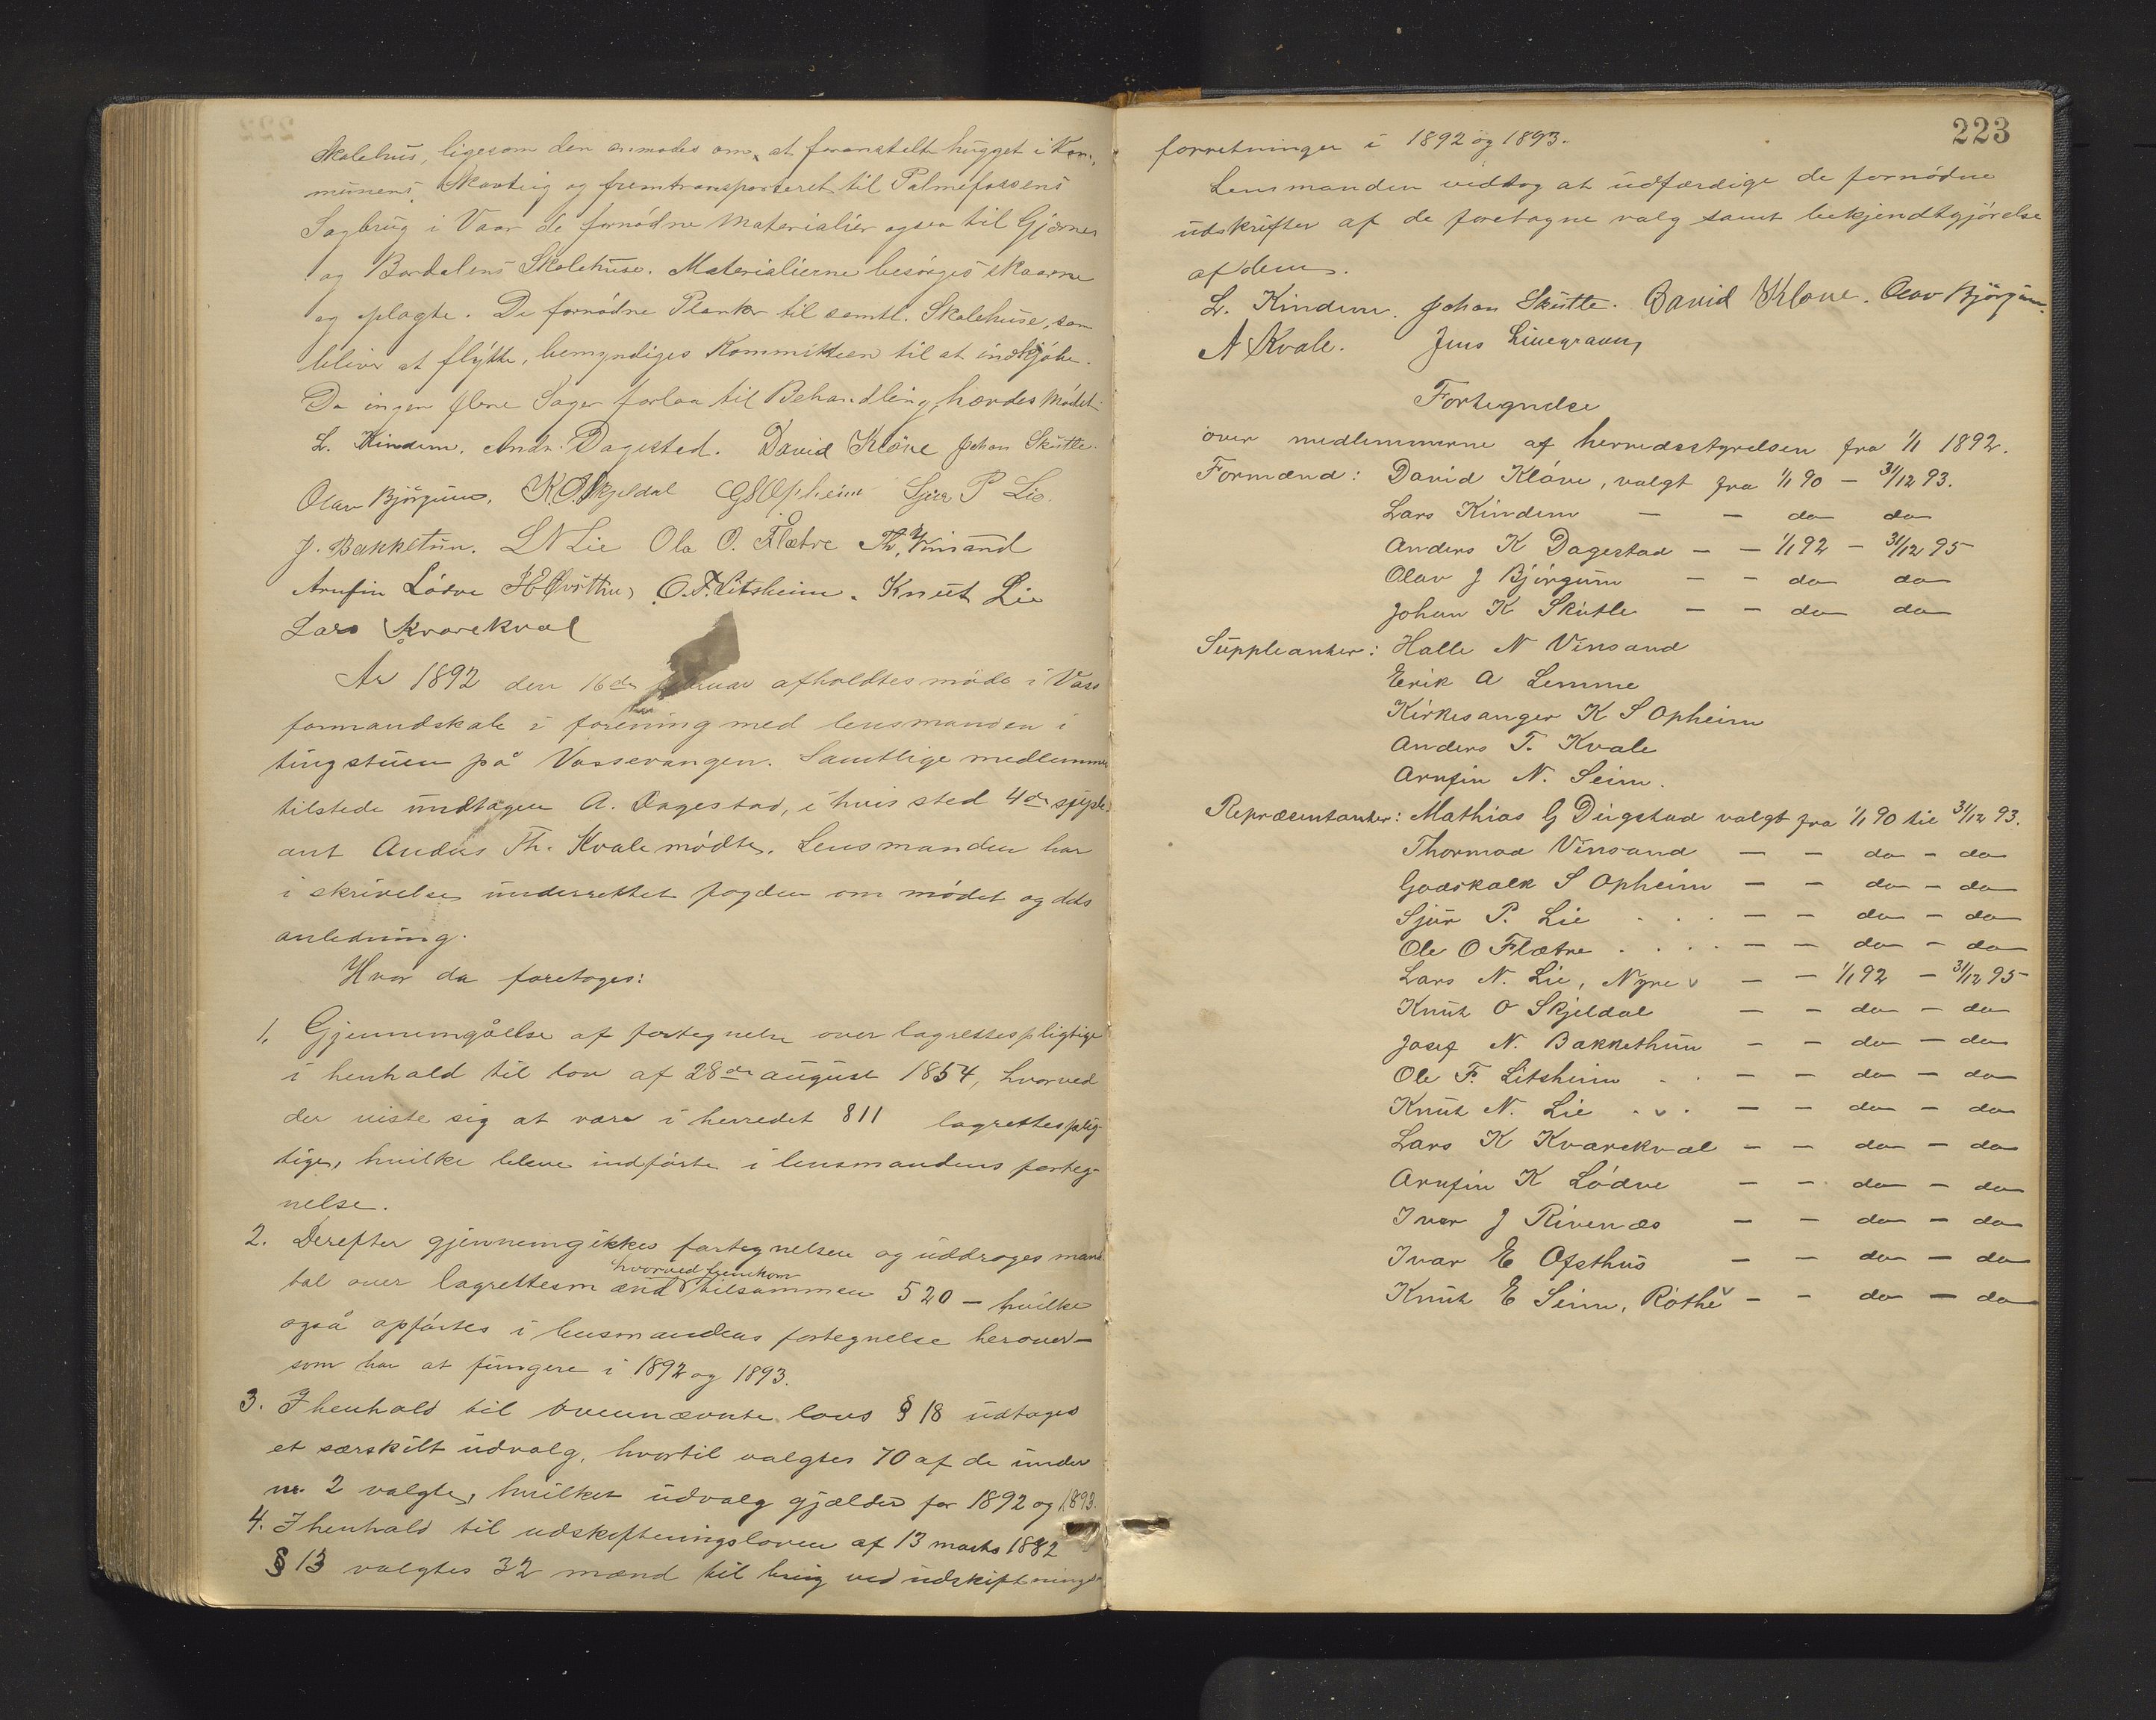 Skolehus, ligesom den anmodes om, at foranstalte hugget i Kom-
munens Skovteig og fremtransporteret til Palmefossens
Sagbrug i Vaar de fornødne Materialier ogsaa til Gjernes
og Bordalens Skolehuse. Materialierne besørges skaarne
og plagte. De fornødne Planker til samtl. Skolehuse, som
bliver at flytte, bemyndiges Kommitteen til at indkjøbe.
Da ingen flere Sager forlaa til Behandling, hævdes Mødet.
L. Kindem. Andr. Dagestad. David Kløve Johan Skutle.
Olav Bjørgum. K. O. Skjeldal GSOpheim Sjur P Lie.
J. Bakketun. L N Lie Ola O. Flætre Th. Vinsand
Arnfin Lødve O. F. Litsheim. Knut Lie
Lars Kvarekval
År 1892 den 16de februar afholdtes møde i Voss
formandskab i forening med lensmanden i
tingstuen på Vossevangen. Samtlige medlemmer
tilstede undtagen A. Dagestad, i hvis sted 4de supple-
ant Anders Th. Kvale mødte. Lensmanden har
i skrivelse underrettet fogden om mødet og dets
anledning.
Hvor da foretoges:
1. Gjennemgåelse af fortegnelse over lagrettespligtige
i henhold til lov af 28de august 1854, hvorved
der viste sig at være i herredet 811 lagrettesplig-
tige, hvilke bleve indførte i lensmandens forteg-
nelse.
2. Derefter gjennemgikkes fortegnelsen og uddroges mand-
hvorved fremkom
tal over lagrettesmænd tilsammen 520 – hvilke
også opførtes i lensmandens fortegnelse herover –
som har at fungere i 1892 og 1893.
3. I henhold til ovennævnte lovs § 18 udtoges
et særskilt udvalg, hvortil valgtes 70 af de under
nr. 2 valgte, hvilket udvalg gjælder for 1892 og 1893.
4. I henhold til udskiftningsloven af 13 marts 1882
§ 13 valgtes 32 mænd til brug ved udskiftnings-
223
forretninger i 1892 og 1893.
Lensmanden vedtog at udfærdige de fornødne
udskrifter af de foretagne valg samt bekjendtgjørelse
af dem.
L. Kindem. Johan Skutle. David Kløve. Olav Bjørgum.
A Kvale. Jens Linegrauny
Fortegnelse
over medlemmerne af herredsstyrelsen fra 1/1 1892.
Formænd: David Kløve, valgt fra 1/1 90 – 31/12 93.
Lars Kindem – – do do
Anders K Dagestad – – 1/1 92 – 31/12 95
Olav J Bjørgum – – do do
Johan K Skutle – – do do
Suppleanter: Halle N Vinsand
Eerik A Lemme
Kirkesanger K S Opheim
Anders T. Kvale
Arnfin N. Seim.
Repræsentanter: Mathias G Dugstad valgt fra 1/1 90 til 31/12 93.
Thormod Vinsand – – do – do
Godskalk S Opheim – – do – do
Sjur P. Lie . . . – – do – do
Ole O Flætre . . . . – – do – do
Lars N. Lie, Nyre v – – 1/1 92 – 31/12 95
Knut O Skjeldal – – do – do
Josef N. Bakkethun – – do – do
Ole F. Litsheim . . – – do – do
Knut N. Lie . v . – – do – do
Lars K Kvarekval – – do – do
Arnfin K Lødve – – do – do
Iver J Rivenæs – – do – do
Ivar E Ofsthus – – do – do
Knut E Seim, Rothe v – – do – do